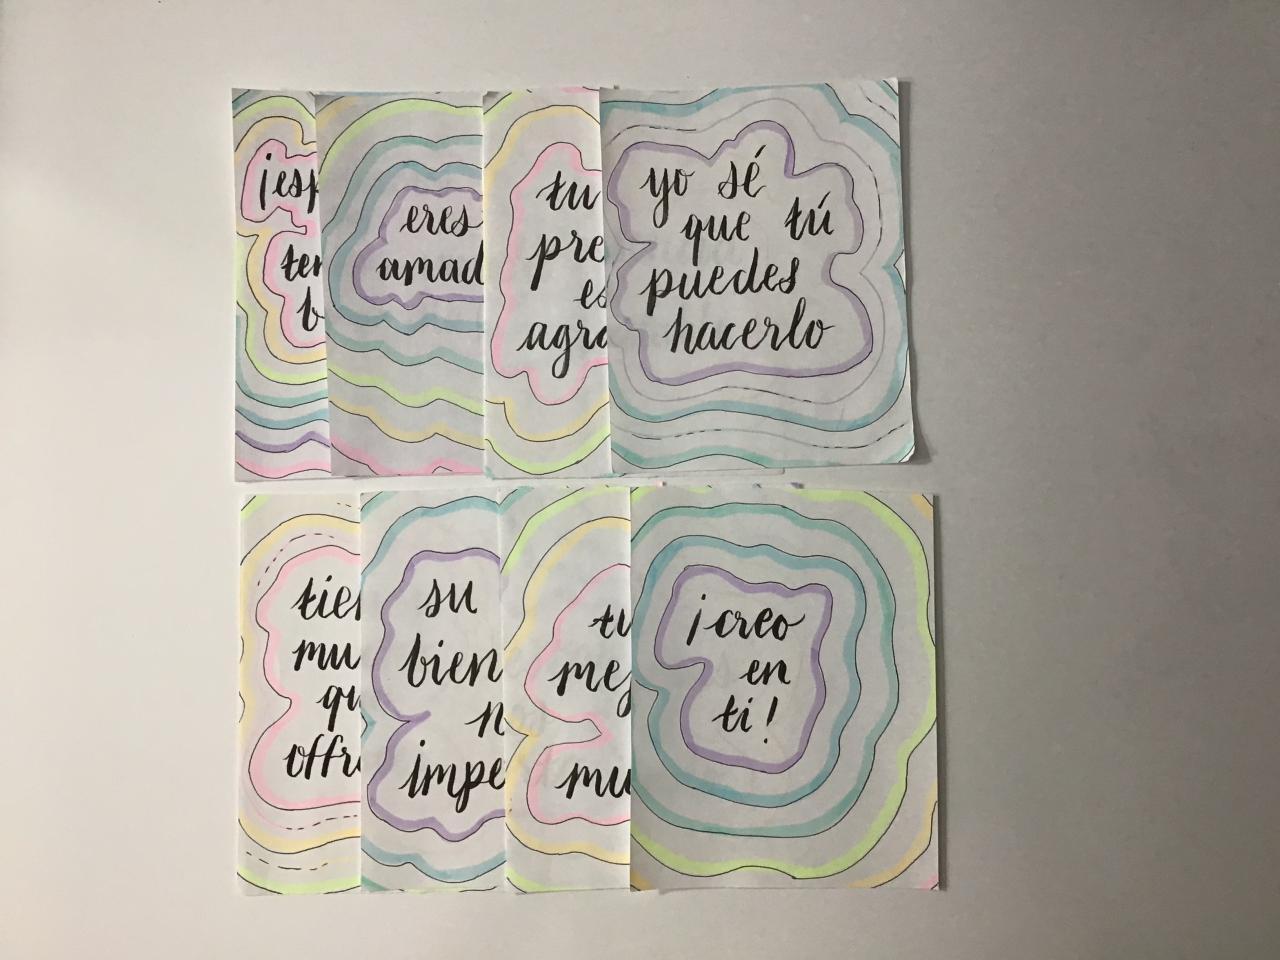 ¡esp
ter
b
eres
amad
tu
pre
es
agra
yo sé
que tú
puedes
hacerlo
tie
mu
qu
offr
su
bien
n
impe
tu
mej
mu
¡creo
en
ti!